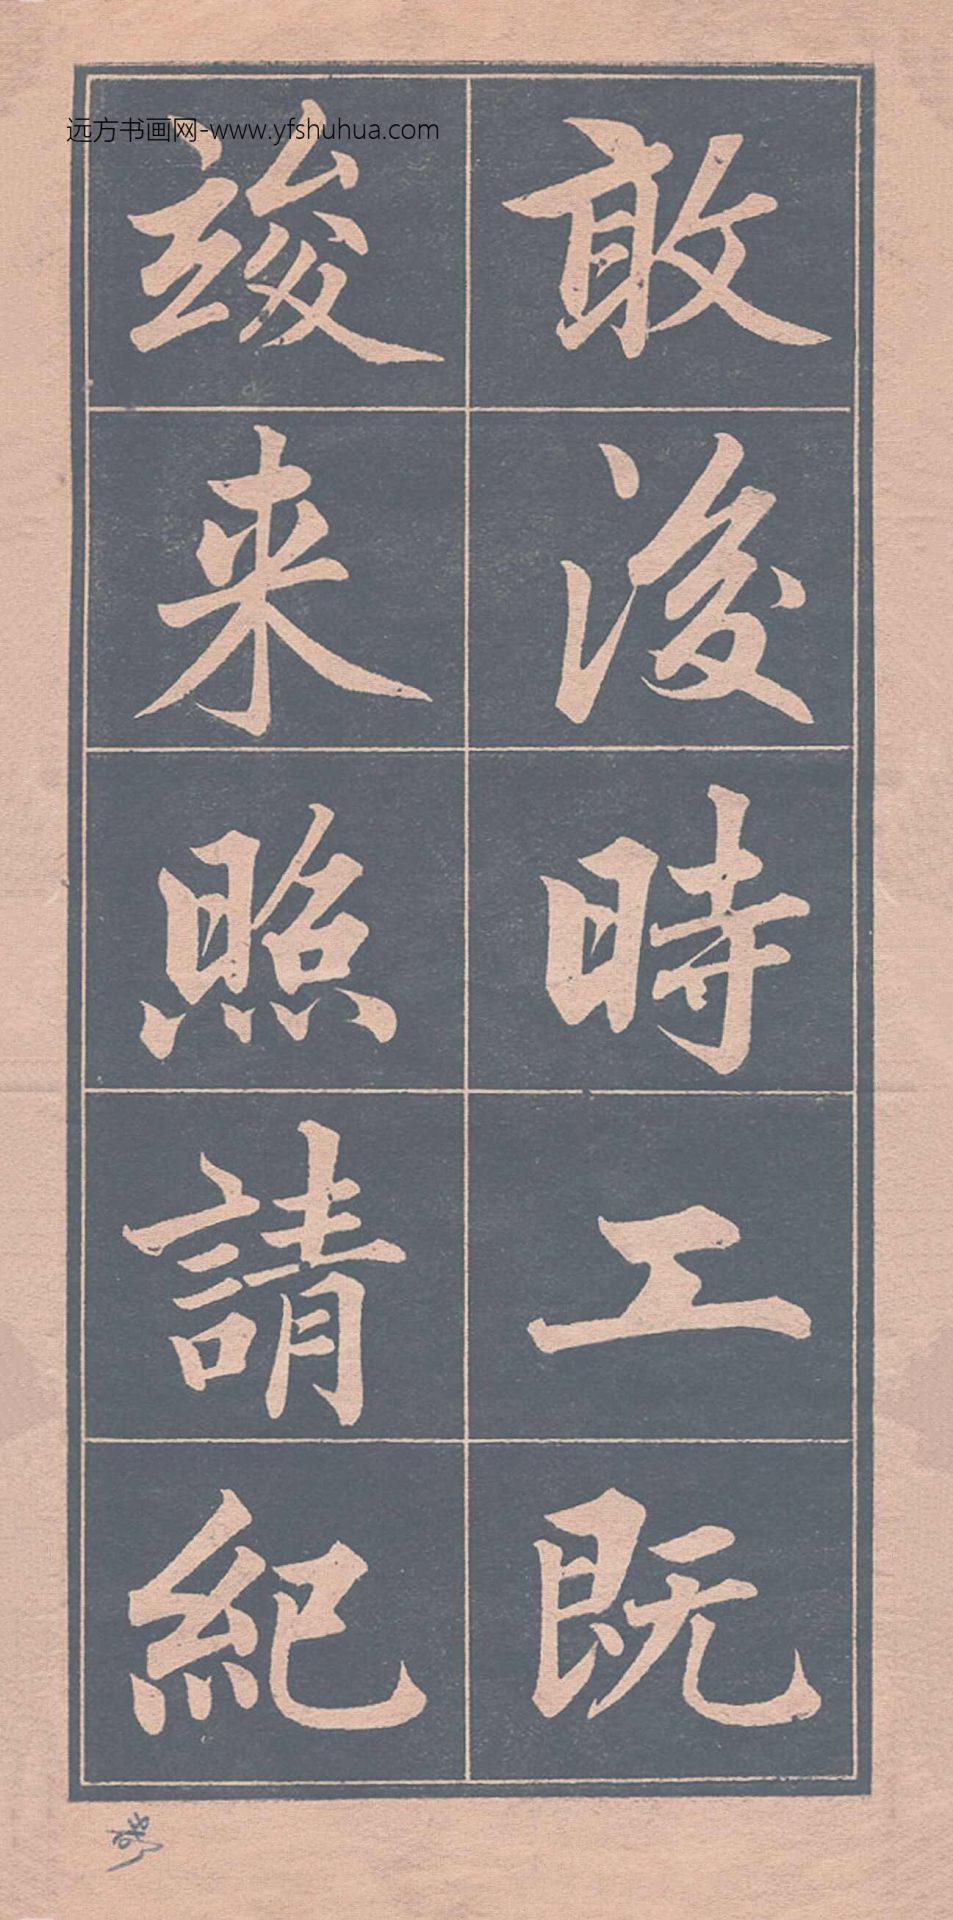 远方书画网-www.yfshuhua.com
敢後時工既
竣来照請紀